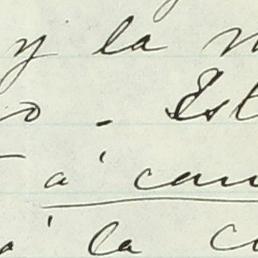 y la
o. Est
á can
á la c